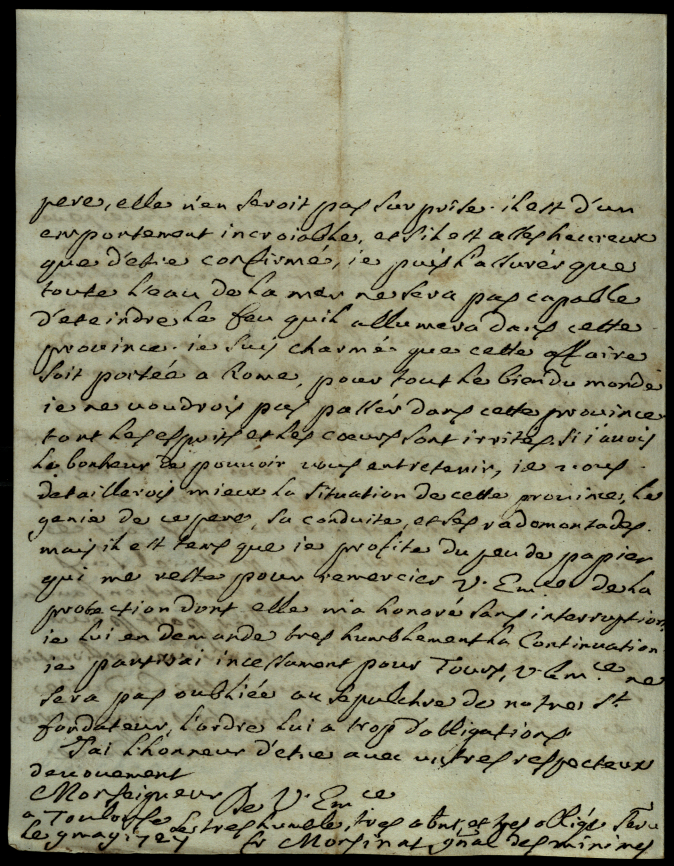 pere, elle n'en seroit pas surprise. il est d'un
emportement incroiable, et s'il est assés heureux
que d'etre confirmé, ie puis l'assurér que
toute l'eau de la mer ne sera pas capable
d'eteindre le feu qu'il allumera dans cette
province. ie suis charmé que cette affaire
soit portée a Rome, pour tout le bien du monde
ie ne voudrois pas passér dans cette province
tant les esprits et les cœurs sont irrites. si j'avois
le bonheur de pouvoir vous entretenir, ie vous
detaillerois mieux la situation de cette province, le
genie de ce pere, sa conduite, et ses radomontades.
mais il est tems que ie profite du peu de papier
qui me reste pour remercier V. Em.ce de la
protection dont elle m'a honoré sans interruption,
ie lui en demande tres humblement la Continuation
ie partirai incessament pour Tours, v. Em.ce ne
sera pas oubliée au sepulchre de notre St
fondateur, l'ordre lui a trop d'obligations
J'ai l'honneur d'etre avec un tres respecteux
devouement
Monseigneur De V. Em.ce
a Toulouse le tres humble, tres obt, et tres obligé Serv
le 9 may fr Monsinat gñal des minimes